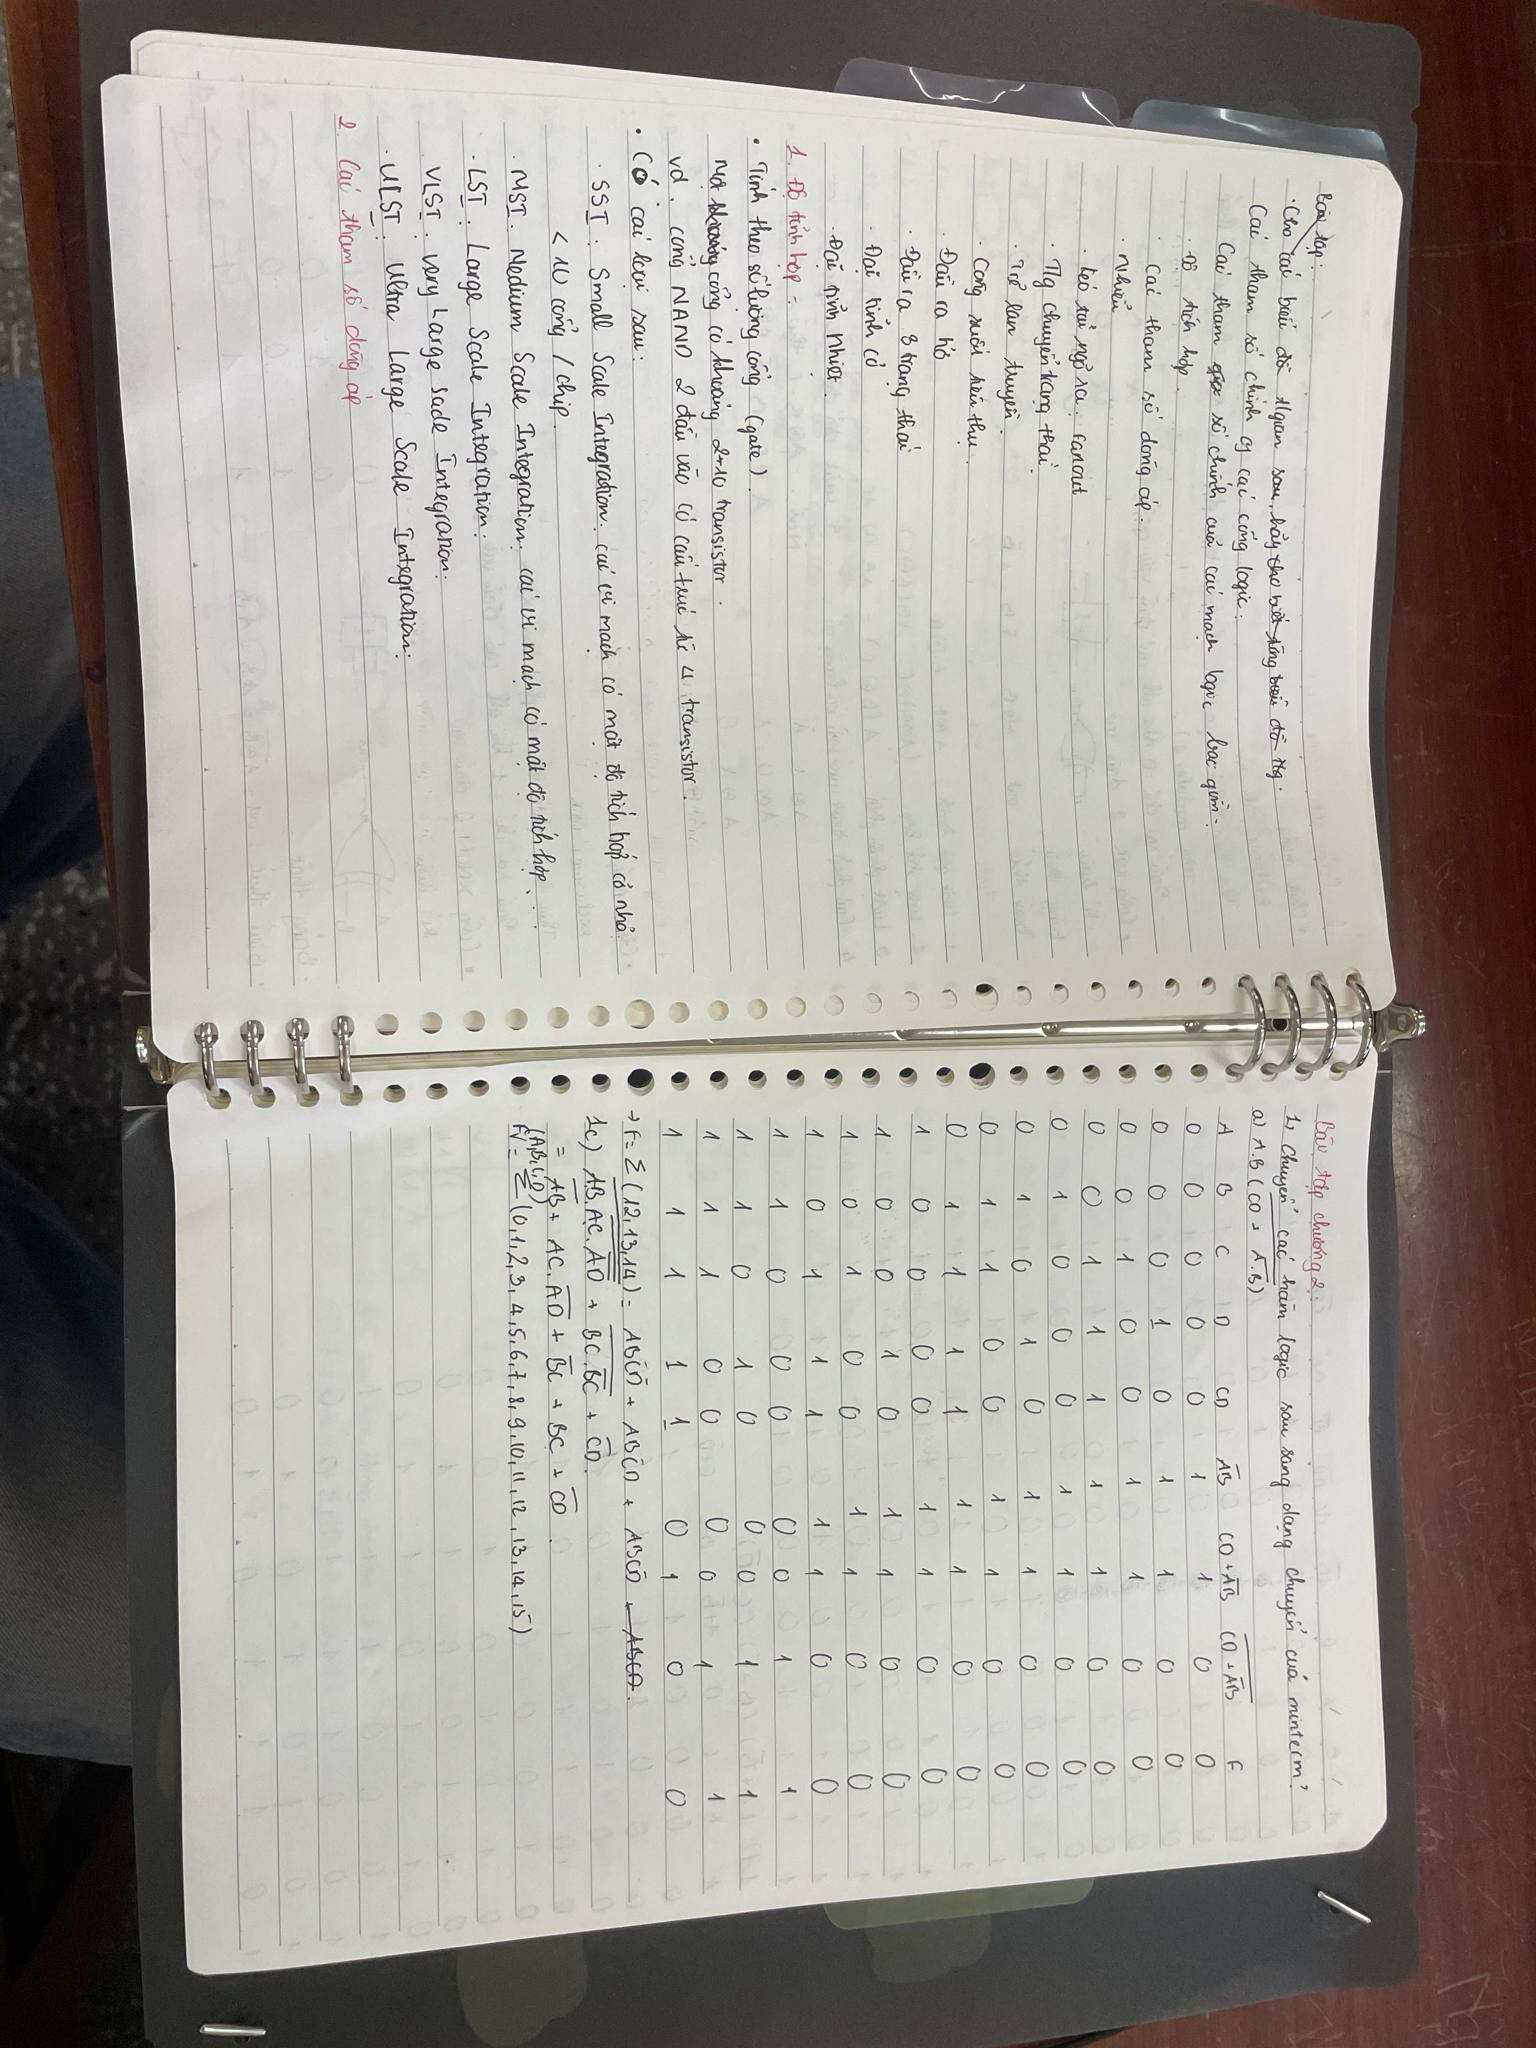 Bài tập:
· Cho các biểu đồ tgian sau, hãy cho biết từng biểu đồ tg.
Các tham số chính of các cổng logic:
Các tham số chính của các mạch logic bao gồm:
· Độ tích hợp.
· Các tham số dòng áp.
· Nhiễu
· Kéo tải ngõ ra: Fanout
· Tg chuyển trạng thái
· Trễ lan truyền.
· Công suất tiêu thụ.
· Đầu ra hở
· Đầu ra 3 trạng thái
· Đặc tính cơ
· Đặc tính nhiệt.
1. Độ tính hợp:
• Tính theo số lượng cổng (gate).
Một cổng có khoảng 2÷10 transistor.
vd: cổng NAND 2 đầu vào có cấu trúc từ 4 transistor.
• Có các loại sau:
· SSI: Small Scale Integration: các vi mạch có mật độ tích hợp cỡ nhỏ
< 10 cổng / chip.
· MSI: Medium Scale Integration: các vi mạch có mật độ tích hợp...
· LSI: Large Scale Integration:
VLSI: Very Large Sade Integration:
· ULSI: Ultra Large Scale Integration:
2. Các tham số dòng áp
Bài tập chương 2:
1, Chuyển các hàm logic sau sang dạng chuyển của minterm?
a) A.B (C̅D̅ ̅+̅ ̅A̅.̅B̅)
A B C D CD A̅B̅ CD + A̅B̅ C̅D̅ ̅+̅ ̅A̅B̅ F
0 0 0 0 0 1 1 0 0
0 0 0 1 0 1 1 0 0
0 0 1 0 0 1 1 0 0
0 0 1 1 1 1 1 0 0
0 1 0 0 0 1 1 0 0
0 1 0 1 0 1 1 0 0
0 1 1 0 0 1 1 0 0
0 1 1 1 1 1 1 0 0
1 0 0 0 0 1 1 0 0
1 0 0 1 0 1 1 0 0
1 0 1 0 0 1 1 0 0
1 0 1 1 1 1 1 0 0
1 1 0 0 0 0 0 1 1
1 1 0 1 0 0 0 1 1
1 1 1 0 0 0 0 1 1
1 1 1 1 1 0 1 0 0
→ F = Σ (12,13,14) = ABC̅D̅ + ABC̅D + ABCD̅ + ABCD.
1c) AB.AC.AD + BC.BC + CD.
= A̅B̅ + AC.A̅D̅ + B̅C + BC + C̅D̅.
(A,B,C,D)
FV = Σ (0,1,2,3, 4,5,6,7, 8, 9,10,11, 12, 13, 14, 15)